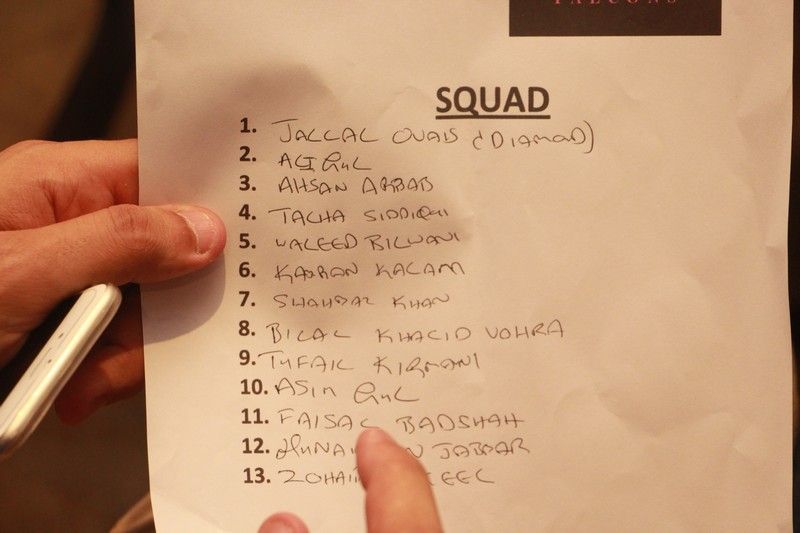 FALCONS
SQUAD
1. JALLAL OVAIS (DIAMOD)
2. ALI GUL
3. AHSAN ARBAB
4. TALHA SIDDIQUI
5. WALEED BILWANI
6. KAMRAN KALAM
7. SHAHBAZ KHAN
8. BILAL KHALID VOHRA
9. TUFAIL KIRMANI
10. ASIM GUL
11. FAISAL BADSHAH
12. JABBAR
13.